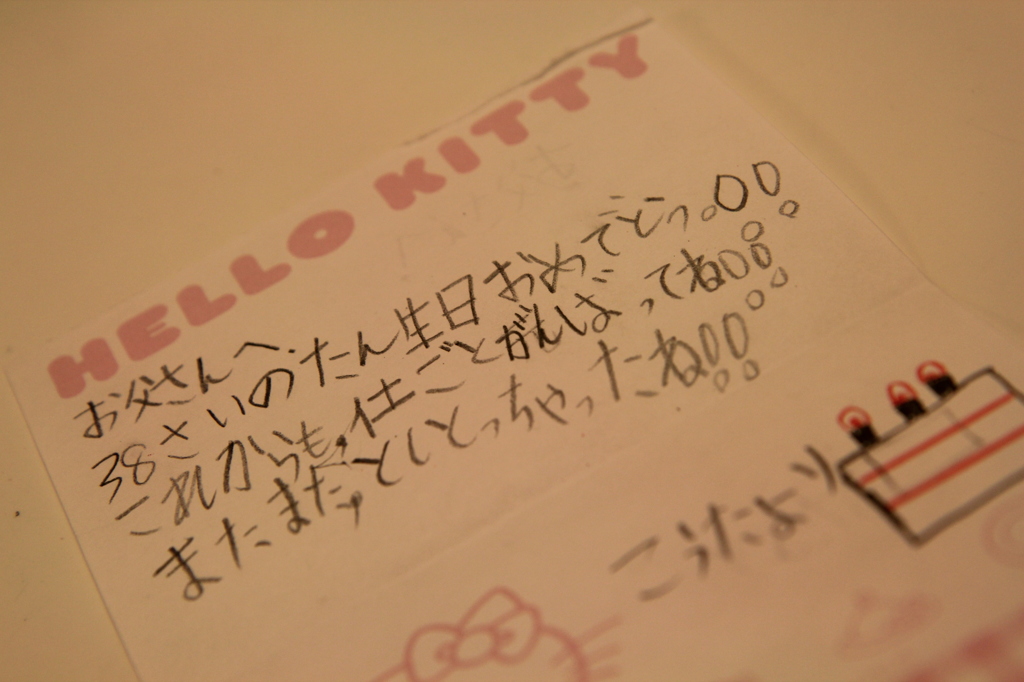 HELLO KITTY
お父さんへ
38さいのたん生日おめでとう。!!
これからも、仕ごとがんばってね!!
まただ、としとっちゃったね!!
こうたより